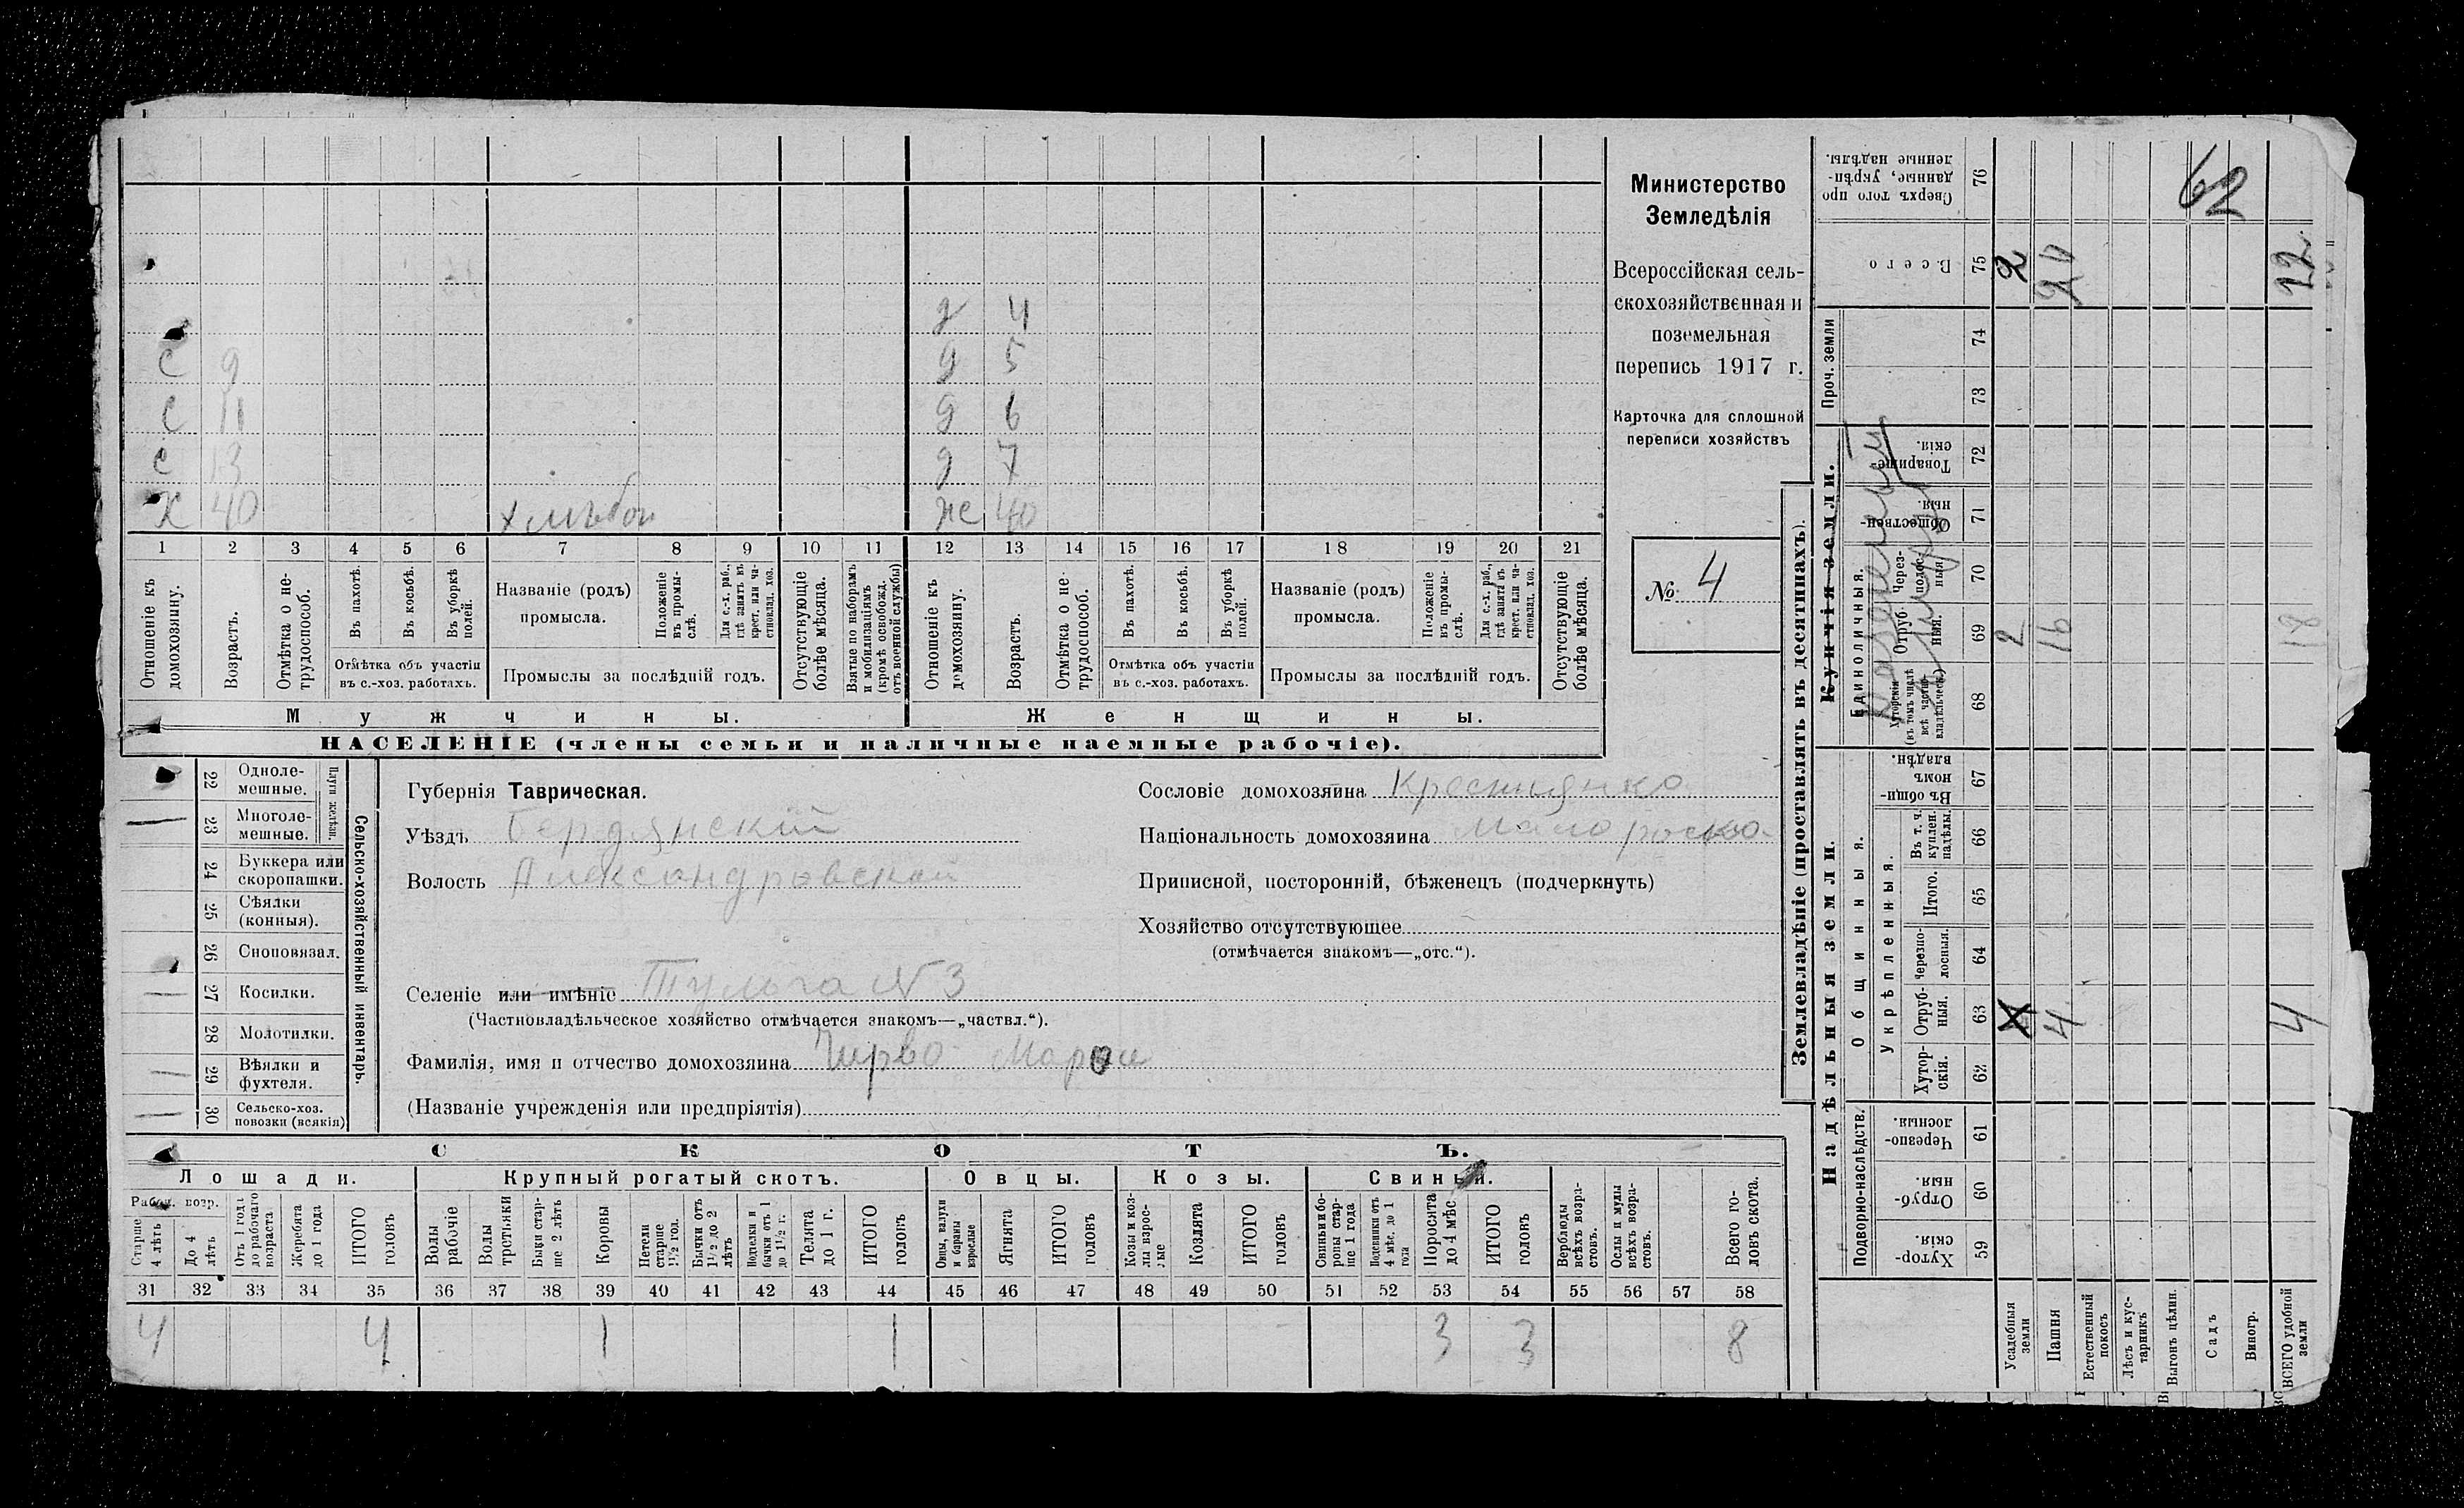 д 4
с 9 д 5
с 11 д 6
с 13 д 7
х 40 же 40
1 2 3 4 5 6 7 8 9 10 11 12 13 14 15 16 17 18 19 20 21
Отношеніе къ домохозяину.
Возрастъ.
Отмѣтка о не-трудоспособ.
Въ пахотѣ.
Въ косьбѣ.
Въ уборкѣ полей.
Отмѣтка объ участіи въ с.-хоз. работахъ.
Названіе (родъ) промысла.
Положеніе въ промы-слѣ.
Для с.-х. раб., гдѣ занятъ въ крест. или ча-стновлад. хоз.
Промыслы за послѣдній годъ.
Отсутствующіе болѣе мѣсяца.
Взятые по наборамъ и мобилизаціямъ (кромѣ освобожд. отъ военной службы)
Отношеніе къ домохозяину.
Возрастъ.
Отмѣтка о не-трудоспособ.
Въ пахотѣ.
Въ косьбѣ.
Въ уборкѣ полей.
Отмѣтка объ участіи въ с.-хоз. работахъ.
Названіе (родъ) промысла.
Положеніе въ промы-слѣ.
Для с.-х. раб., гдѣ занята въ крест. или ча-стновлад. хоз.
Промыслы за послѣдній годъ.
Отсутствующіе болѣе мѣсяца.
Мужчины. Женщины.
НАСЕЛЕНІЕ (члены семьи и наличные наемные рабочіе).
Министерство
Земледѣлія
Всероссійская сель-
скохозяйственная и
поземельная
перепись 1917 г.
Карточка для сплошной
переписи хозяйствъ
№ 4
22 Однолемешные.
23 Многолемешные.
Плуги желѣзн.
24 Буккера или скоропашки.
25 Сѣялки (конныя).
26 Сноповязал.
27 Косилки.
28 Молотилки.
29 Вѣялки и фухтеля.
30 Сельско-хоз. повозки (всякія)
Сельско-хозяйственный инвентарь.
Губернія Таврическая.
Уѣздъ Бердянскій
Волость Александровской
Селеніе или имѣніе Тульга № 3
(Частновладѣльческое хозяйство отмѣчается знакомъ—„частвл.“).
Фамилія, имя и отчество домохозяина
(Названіе учрежденія или предпріятія)
Сословіе домохозяина Крестьянка
Національность домохозяина
Приписной, посторонній, бѣженецъ (подчеркнуть)
Хозяйство отсутствующее
(отмѣчается знакомъ—„отс.“).
СКОТЪ.
Лошади. Крупный рогатый скотъ. Овцы. Козы. Свиньи.
Рабоч. возр.
Старше 4 лѣтъ
До 4 лѣтъ
Отъ 1 года до рабочаго возраста
Жеребята до 1 года
ИТОГО головъ
Волы рабочіе
Волы третьяки
Быки стар-ше 2 лѣтъ
Коровы
Нетели старше 1½ год.
Бычки отъ 1½ до 2 лѣтъ
Подтелки и бычки отъ 1 до 1½ г.
Телята до 1 г.
ИТОГО головъ
Овцы, валухи и бараны взрослые
Ягнята
ИТОГО головъ
Козы и коз-лы взрос-лые
Козлята
ИТОГО головъ
Свиньи и бо-ровы стар-ше 1 года
Подсвинки отъ 4 мѣс. до 1 года
Поросята до 4 мѣс
ИТОГО головъ
Верблюды всѣхъ возра-стовъ.
Ослы и мулы всѣхъ возра-стовъ.
Всего го-ловъ скота.
31 32 33 34 35 36 37 38 39 40 41 42 43 44 45 46 47 48 49 50 51 52 53 54 55 56 57 58
4 4 1 1 3 3 8
Землевладѣніе (проставлять въ десятинахъ).
Надѣльныя земли.
Купчія земли.
Проч. земли
Подворно-наслѣдств.
Общинныя.
Укрѣпленныя.
Единоличныя.
Хутор-скія. 59
Отруб-ныя. 60
Черезпо-лосныя. 61
Хутор-скія. 62
Отруб-ныя. 63
Черезпо-лосныя. 64
Итого. 65
Въ т. ч. куплен. надѣлы 66
Въ общи-номъ владѣн. 67
Хуторскія (въ томъ числѣ всѣ частно-владѣльческ.) 68
Отруб-ныя. 69
Через-полос-ныя. 70
Обществен-ныя. 71
Товарище-скія. 72
73
74
Всего 75
Сверхъ того про данные, укрѣп-ленные надѣлы. 76
Усадебныя земли 2 2
Пашня 4 16 20
Естественный покосъ
Лѣсъ и кус-тарникъ
Выгонъ цѣлин.
Садъ
Виногр.
ВСЕГО удобной земли 4 18 22
62